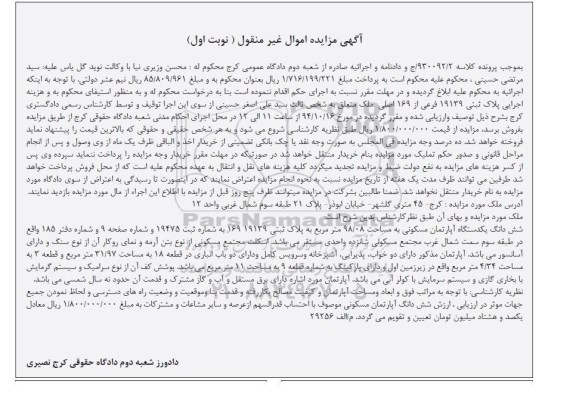 آگهی مزایده اموال غیر منقول ( نوبت اول)
بموجب پرونده کلاسه ۹۳۰۰۹۲/۲/ج و دادنامه و اجرائیه صادره از شعبه دوم دادگاه عمومی کرج محکوم له : محسن وزیری نیا با وکالت نوید گل یاس علیه: سید
مرتضی حسینی ، محکوم علیه محکوم است به پرداخت مبلغ ۱/۷۱۶/۱۹۹/۲۲۱ ریال بعنوان محکوم به و مبلغ ۸۵/۸۰۹/۹۶۱ ریال نیم عشر دولتی. با توجه به اینکه
اجرائیه به محکوم علیه ابلاغ گردیده و در مهلت مقرر نسبت به اجرای حکم اقدام ننموده است بنا به درخواست محکوم له و به منظور استیفای محکوم به و هزینه
اجرایی پلاک ثبتی ۱۹۱۳۹ فرعی از ۱۶۹ اصلی ملک متعلق به شخص ثالث سید علی اصغر حسینی از سوی این اجرا توقیف و توسط کارشناس رسمی دادگستری
کرج بشرح ذیل توصیف وارزیابی شده و مقرر گردیده در مورخ ۹۴/۱۰/۱۶ از ساعت ۱۱ الی ۱۲ در محل اجرای احکام مدنی شعبه دادگاه حقوقی کرج از طریق مزایده
بفروش برسد، مزایده از قیمت ۱/۸۰۰/۰۰۰/۰۰۰ ریال طبق نظریه کارشناسی شروع می شود و به هر شخص حقیقی و حقوقی که بالاترین قیمت را پیشنهاد نماید
فروخته خواهد شد. ده درصد وجه مزایده فی المجلس به صورت وجه نقد یا چک بانکی تضمینی از خریدار اخذ و الباقی ظرف یک ماه از وی وصول و پس از انجام
مراحل قانونی و صدور حکم تملیک مورد مزایده بنام خریدار منتقل خواهد شد در صورتیکه در مهلت مقرر خریدار وجه مزایده را پرداخت ننماید سپرده وی پس
از کسر هزینه های مزایده به نفع دولت ضبط و مزایده تجدید میگردد کلیه هزینه های نقل و انتقال به عهده محکوم علیه است که از محل فروش پرداخت خواهد
شد طرفین می توانند ظرف مدت یک هفته از تاریخ مزایده نسبت به نحوه انجام مزایده اعتراض نمایند که در اینصورت تا رسیدگی به اعتراض از سوی دادگاه مورد
مزایده به نام خریدار منتقل نخواهد شد. ضمنا طالبین بشرکت در مزایده میتوانند ظرف پنج روز قبل از مزایده با اطلاع این اجراء از مال مورد مزایده بازدید نمایند.
آدرس ملک مورد مزایده : کرج- ۴۵ متری گلشهر- خیابان ابوذر- پلاک ۲۱ طبقه سوم شمال غربی واحد ۱۲
ملک مورد مزایده و بهای آن طبق نظرکارشناس بدین شرح است
شش دانگ یکدستگاه آپارتمان مسکونی به مساحت ۹۸/۰۸ متر مربع به پلاک ثبتی ۱۹۱۳۹ ۱۶۹ به شماره ثبت ۱۹۴۷۵ و شماره صفحه ۹ و شماره دفتر ۱۸۵ واقع
در طبقه سوم سمت شمال غرب مجتمع مسکونی شانزده واحدی مستقر می باشد. اسکلت مجتمع مسکونی از نوع بتن آرمه و نمای روکار آن از نوع سنگ و دارای
آسانسور می باشد. آپارتمان مذکور دارای دو خواب، پذیرایی، آشپزخانه وسرویس کامل ودارای دو باب انباری در قطعه ۱۸ به مساحت ۳۱/۹۷ متر مربع و قطعه ۳ به
مساحت ۴/۳۴ متر مربع واقع در زیرزمین اول و دارای پارکینگ به شماره قطعه ۹ به مساحت ۱۱ متر مربع می باشد. پوشش کف آن از نوع سرامیک و سیستم گرمایش
با بخاری گازی و سیستم سرمایش با کولر آبی می باشد. آپارتمان مورد اشاره دارای برق مستقل و آب و گاز مشترک و قدمت آن حدود نه سال شمسی می باشد.
نظریه کارشناسی: با توجه به مراتب فوق و ابعاد ومساحت آپارتمان و کیفیت مصالح بکار رفته و قدمت بنا وموقعیت و وضعیت راه های دسترسی و لحاظ نمودن جمیع
جهات موثر در ارزیابی ، ارزش شش دانگ آپارتمان مسکونی موصوف با احتساب قدرالسهم ازعرصه و سایر مشاعات و مشترکات به مبلغ ۱/۸۰۰/۰۰۰/۰۰۰ ریال معادل
یکصد و هشتاد میلیون تومان تعیین و تقویم می گردد. م/الف ۲۹۲۵۶
دادورز شعبه دوم دادگاه حقوقی کرج نصیری